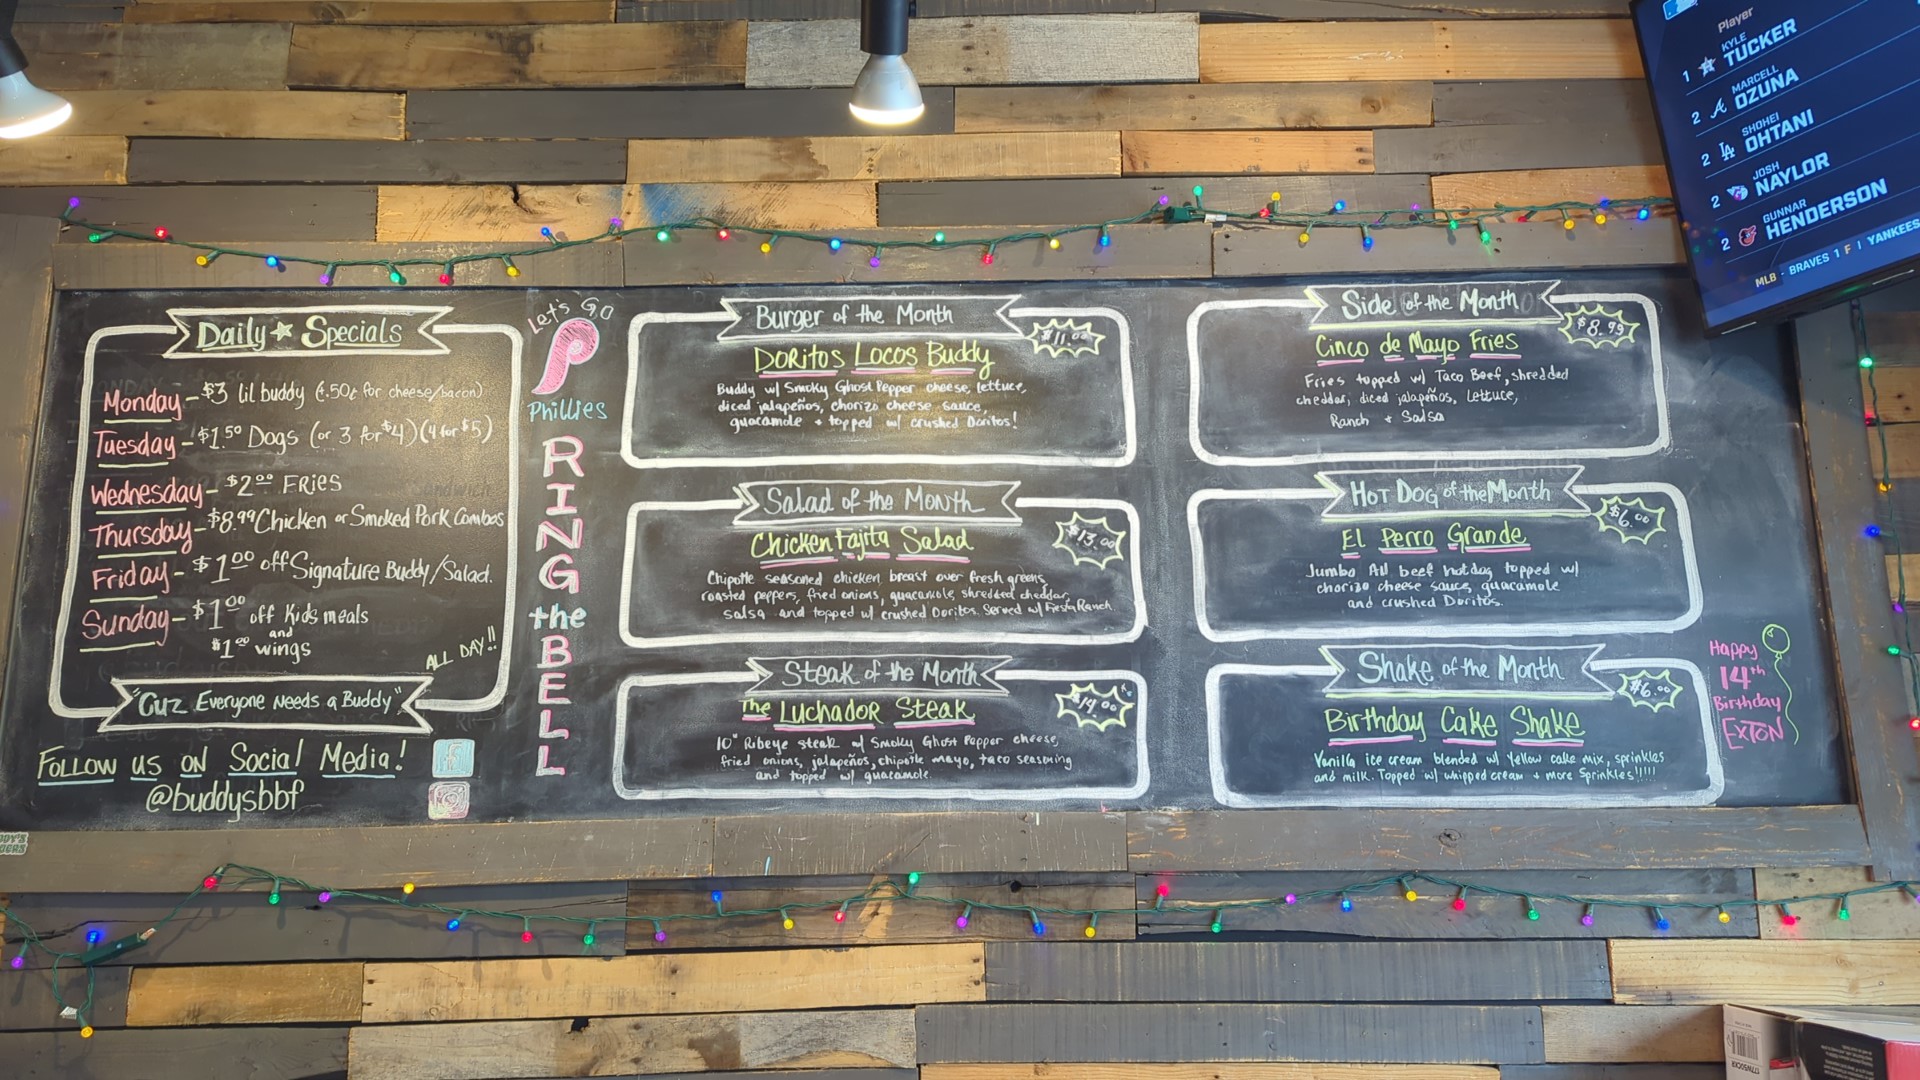 Daily ★ Specials
Monday - $3 lil buddy (.50¢ for cheese/bacon)
Tuesday - $1.50 Dogs (or 3 for $4) (4 for $5)
Wednesday - $2.00 Fries
Thursday - $8.99 Chicken or Smoked Pork Combos
Friday - $1.00 off Signature Buddy/Salad.
Sunday - $1.00 off Kids meals
and
$1.00 wings
ALL DAY!!
"Cuz Everyone Needs a Buddy"
Follow us on Social Media!
@buddysbbf
Let's Go
P
Phillies
RING
the
BELL
Burger of the Month
$11.00
Doritos Locos Buddy
Buddy w/ Smoky Ghost Pepper cheese, lettuce,
diced jalapeños, chorizo cheese sauce,
guacamole + topped w/ crushed Doritos!
Salad of the Month
$13.00
Chicken Fajita Salad
Chipotle seasoned chicken breast over fresh greens,
roasted peppers, fried onions, guacamole, shredded cheddar,
salsa and topped w/ crushed Doritos. Served w/ Fiesta Ranch
Steak of the Month
$14.00
The Luchador Steak
10" Ribeye steak w/ Smoky Ghost Pepper cheese,
fried onions, jalapeños, chipotle mayo, taco seasoning
and topped w/ guacamole
Side of the Month
$8.99
Cinco de Mayo Fries
Fries topped w/ Taco Beef, shredded
cheddar, diced jalapeños, Lettuce,
Ranch + Salsa
Hot Dog of the Month
$6.00
El Perro Grande
Jumbo All beef hotdog topped w/
chorizo cheese sauce, guacamole
and crushed Doritos.
Shake of the Month
$6.00
Birthday Cake Shake
Vanilla ice cream blended w/ Yellow cake mix, sprinkles
and milk. Topped w/ whipped cream + more Sprinkles!!!!!
Happy
14th
Birthday
Exton
Player
1 KYLE TUCKER
2 MARCELL OZUNA
2 LA SHOHEI OHTANI
2 JOSH NAYLOR
2 GUNNAR HENDERSON
MLB - BRAVES 1 F | YANKEES